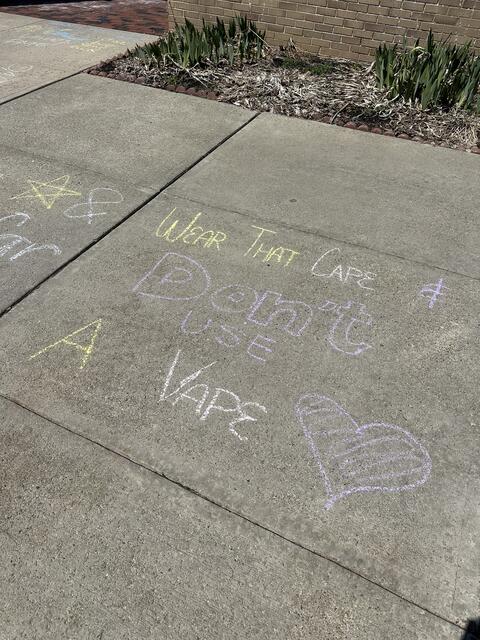 WEAR THAT CAPE &
Don't
USE
A VAPE
&